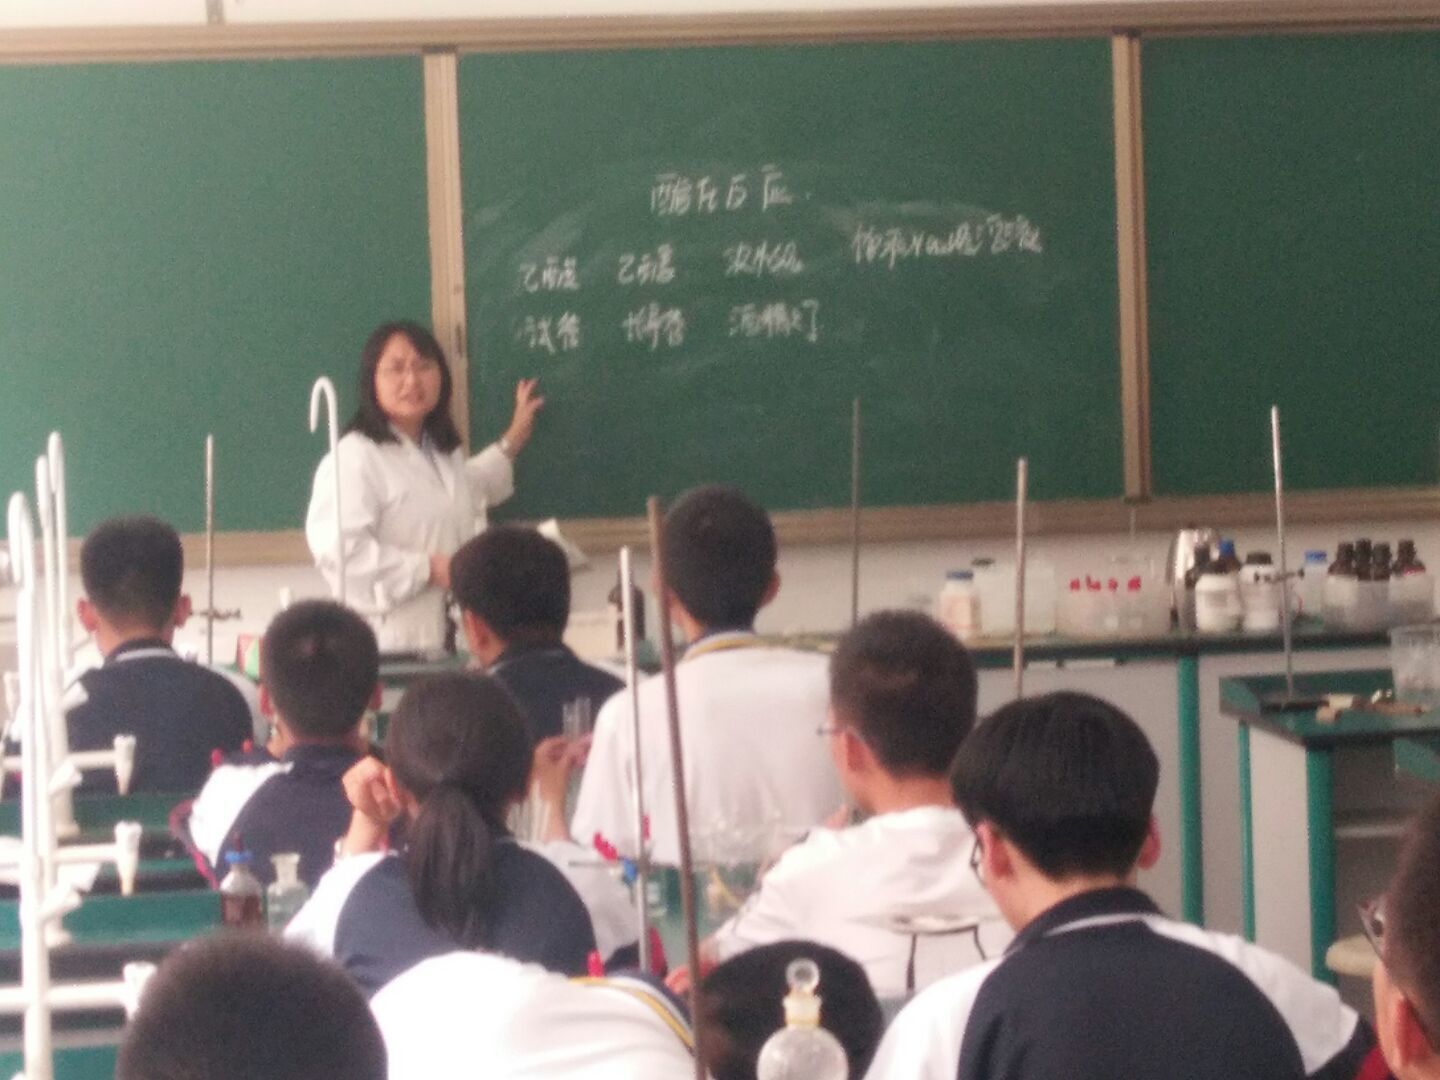 酯化反应
乙酸 乙醇 浓H₂SO₄ 饱和Na₂CO₃溶液
试管 长导管 酒精灯